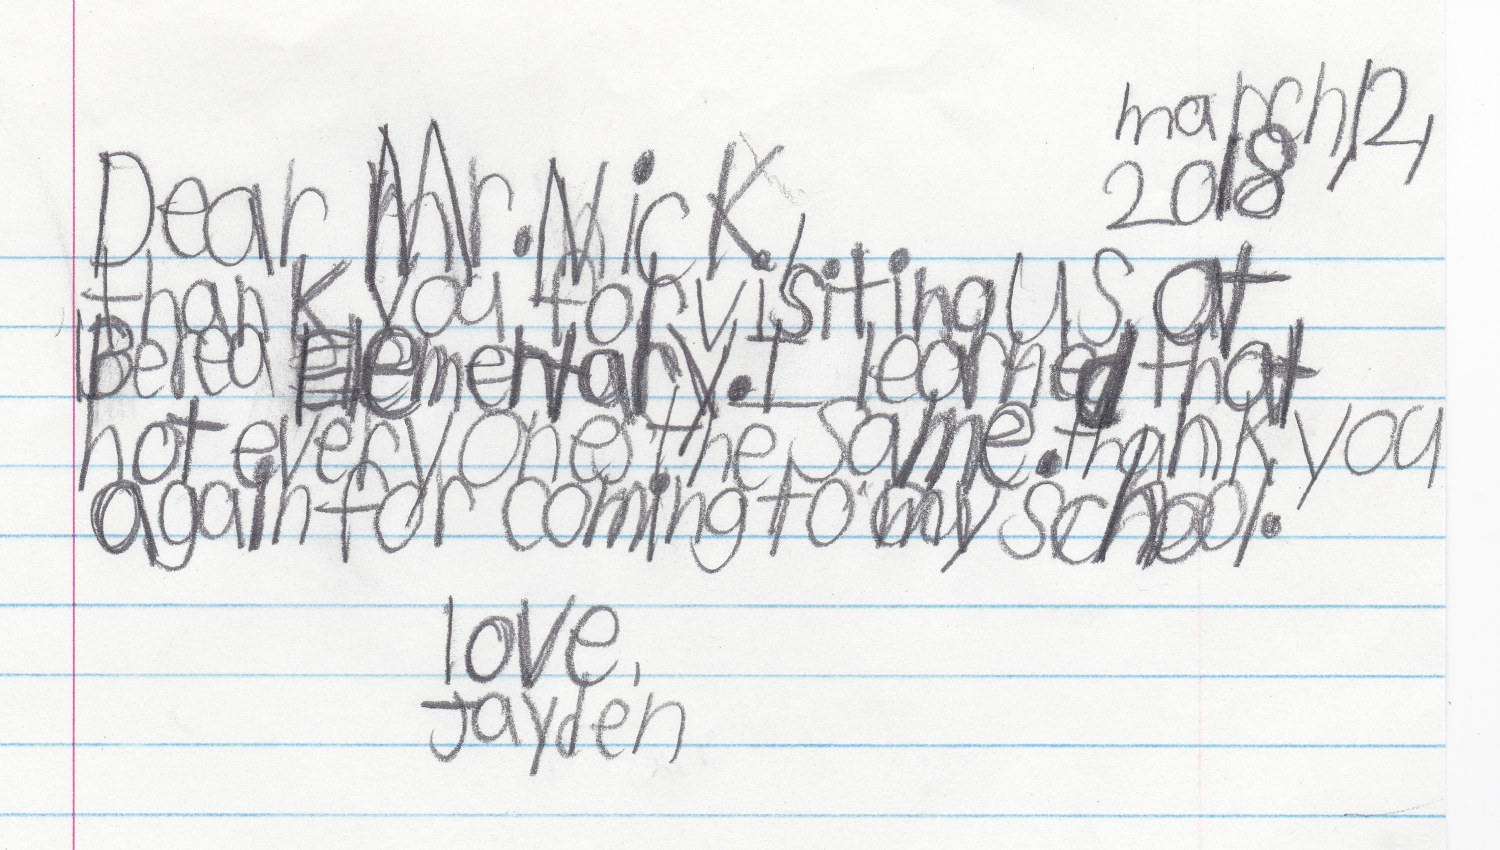 march 12,
2018
Dear Mr. Nick.,
thank you for visiting us at
Berea Elementary. I learned that
not every one is the same. thank you
again for coming to my school.
love,
Jayden